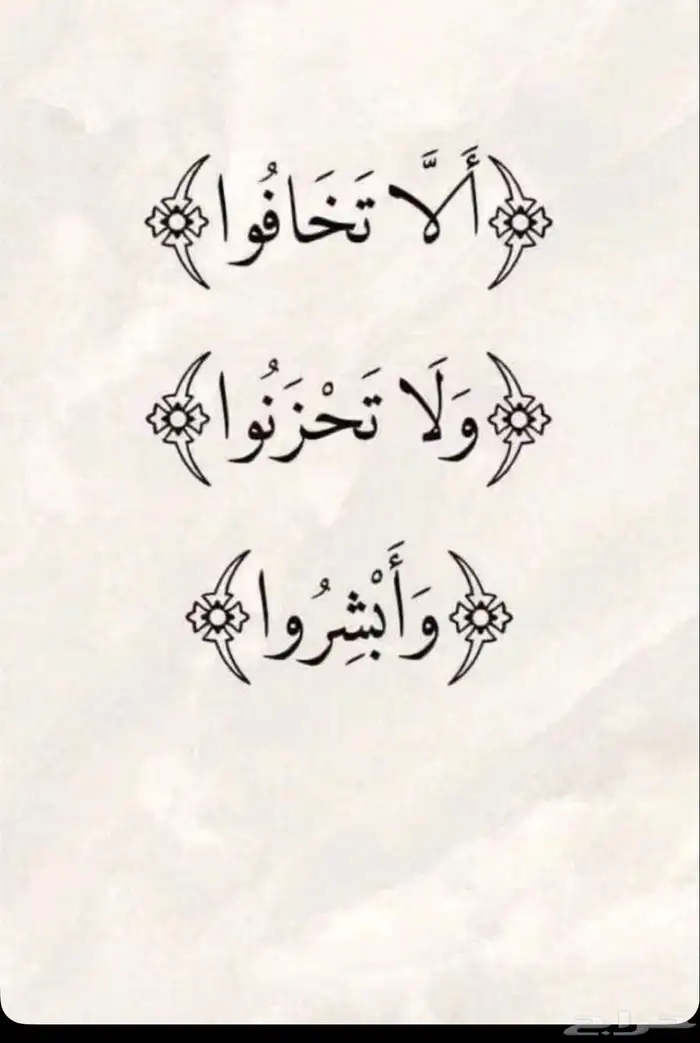 ﴿أَلَّا تَخَافُوا﴾
﴿وَلَا تَحْزَنُوا﴾
﴿وَأَبْشِرُوا﴾
حراج